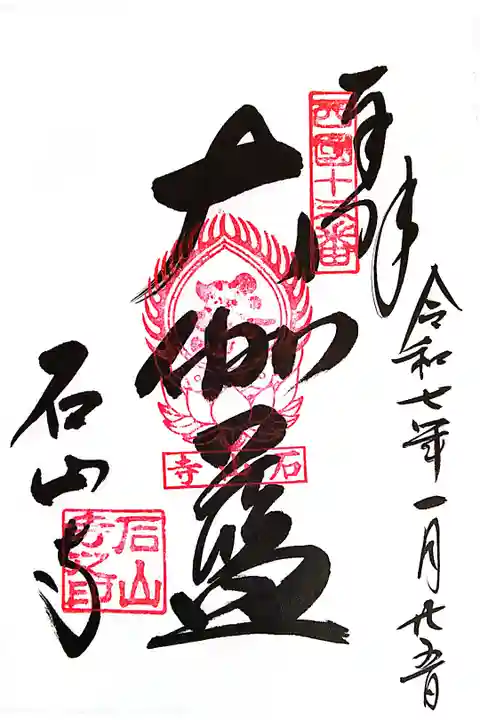 奉拝
西国十三番
令和七年一月廿五日
大伽藍
石山寺
石山寺
石山寺之印